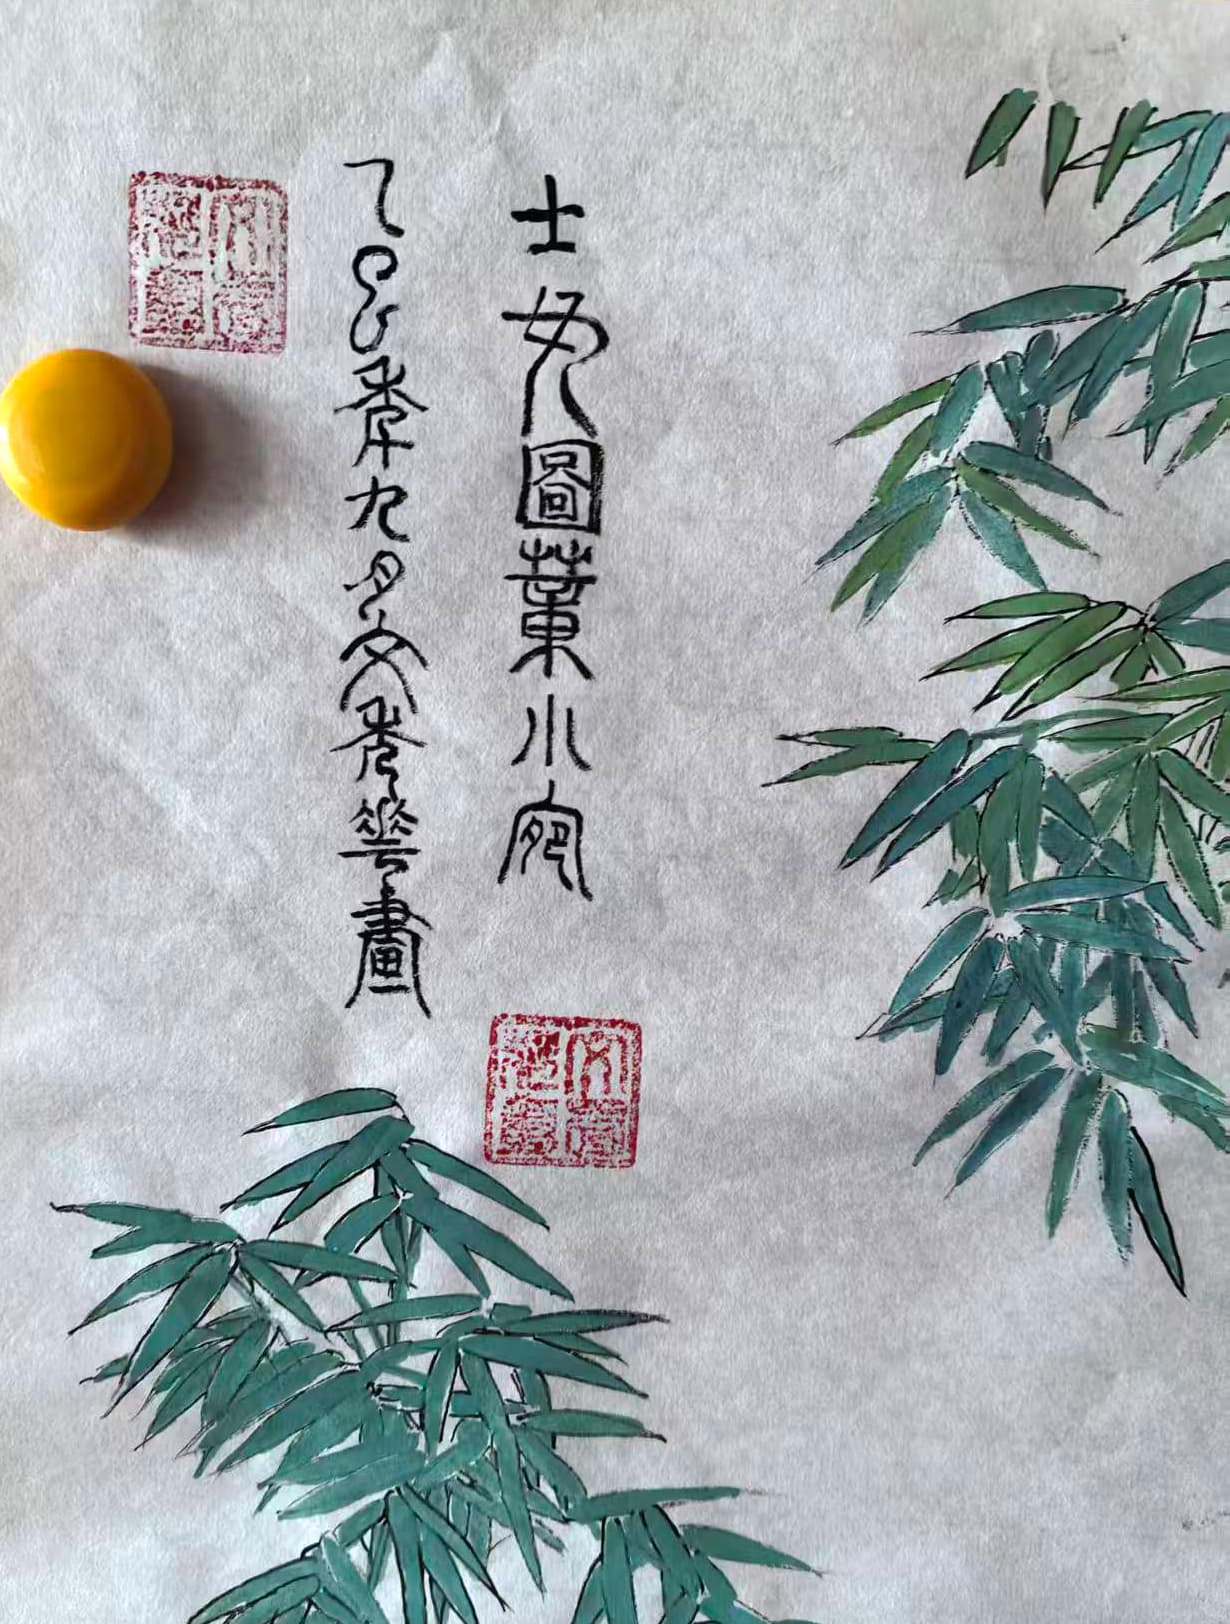 士女圖董小宛
乙巳年九月文秀華畫